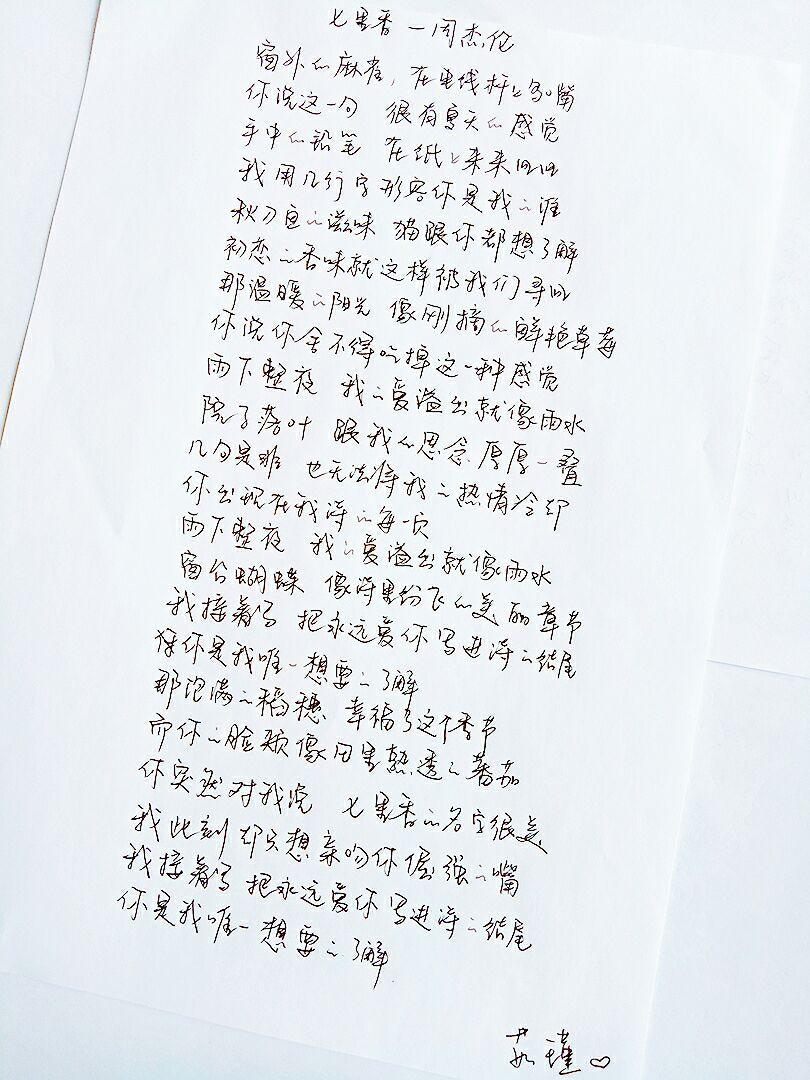 七里香 — 周杰伦
窗外的麻雀,在电线杆上多嘴
你说这一句 很有夏天的感觉
手中的铅笔 在纸上来来回回
我用几行字形容你是我的谁
秋刀鱼的滋味 猫跟你都想了解
初恋的香味就这样被我们寻回
那温暖的阳光 像刚摘的鲜艳草莓
你说你舍不得吃掉这一种感觉
雨下整夜 我的爱溢出就像雨水
院子落叶 跟我的思念厚厚一叠
几句是非 也无法将我的热情冷却
你出现在我诗的每一页
雨下整夜 我的爱溢出就像雨水
窗台蝴蝶 像诗里纷飞的美丽章节
我接着写 把永远爱你写进诗的结尾
你是我唯一想要的了解
那饱满的稻穗 幸福了这个季节
而你的脸颊像田里熟透的蕃茄
你突然对我说 七里香的名字很美
我此刻却只想亲吻你倔强的嘴
我接着写 把永远爱你写进诗的结尾
你是我唯一想要的了解